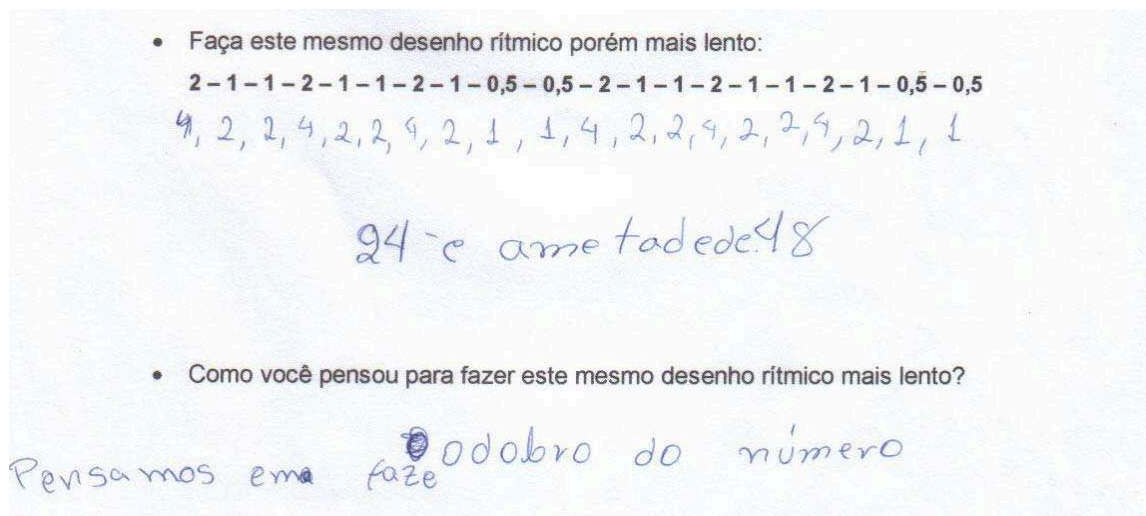 • Faça este mesmo desenho rítmico porém mais lento:
2 – 1 – 1 – 2 – 1 – 1 – 2 – 1 – 0,5 – 0,5 – 2 – 1 – 1 – 2 – 1 – 1 – 2 – 1 – 0,5 – 0,5
4, 2, 2, 4, 2, 2, 4, 2, 1, 1, 4, 2, 2, 4, 2, 2, 4, 2, 1, 1
24 e ametadede 48
• Como você pensou para fazer este mesmo desenho rítmico mais lento?
Pensamos em faze odobro do número